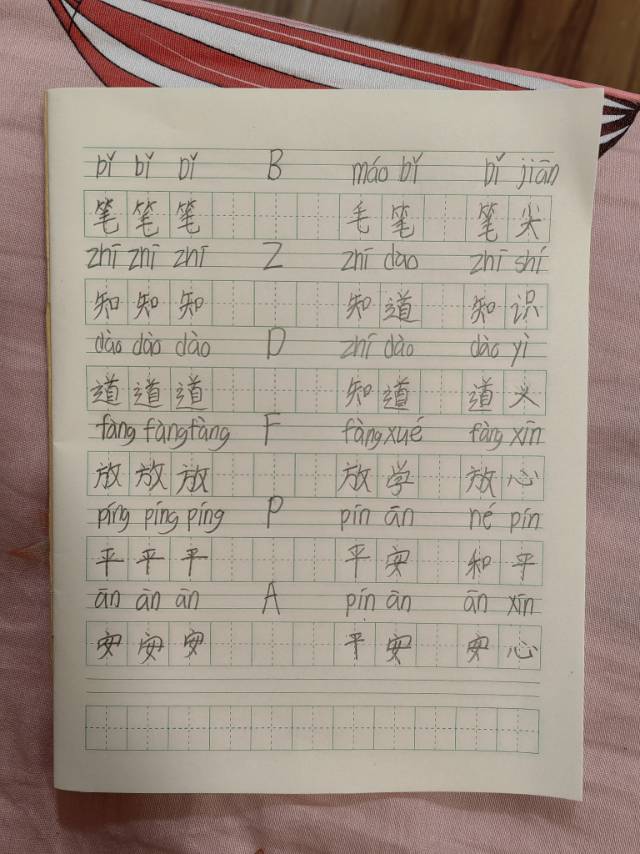 bǐ bǐ bǐ B máo bǐ bǐ jiān
笔笔笔 毛笔 笔尖
zhī zhī zhī Z zhī dao zhī shí
知知知 知道 知识
dào dào dào D zhí dào dào yì
道道道 知道 道义
fàng fàng fàng F fàng xué fàng xīn
放放放 放学 放心
píng píng píng P pín ān né pín
平平平 平安 和平
ān ān ān A pín ān ān xīn
安安安 平安 安心